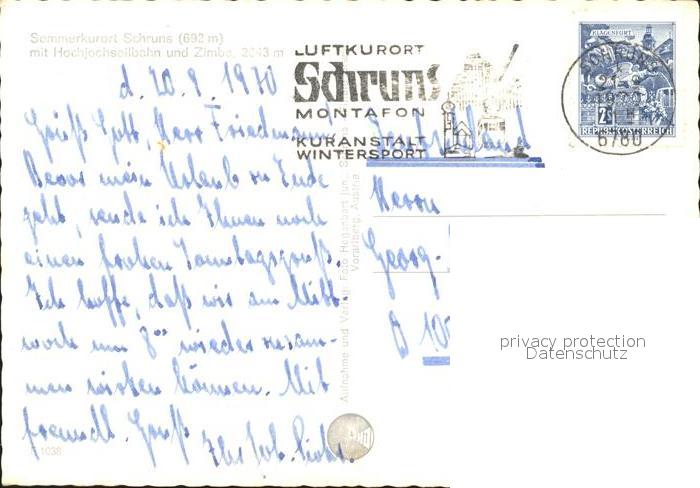 Sommerkurort Schruns (692 m)
mit Hochjochseilbahn und Zimba, 2643 m
d. 20.8.1970
LUFTKURORT
Schruns
MONTAFON
KURANSTALT
WINTERSPORT
KLAGENFURT
SCHRUNS
2S
REPUBLIK ÖSTERREICH
6780
Grüß Gott, Herr Friedmann
Bevor mein Urlaub zu Ende
geht, sende ich Ihnen noch
einen frohen Samstagsgruß.
Ich hoffe, daß wir am Mitt
woch um 8°° wieder zusam-
men wirken können. Mit
freundl. Gruß
Ihr
Deutschland
Herrn
Georg-
D 10
Aufnahme und Verlag: Foto
Vorarlberg, Austria
1038
privacy protection
Datenschutz